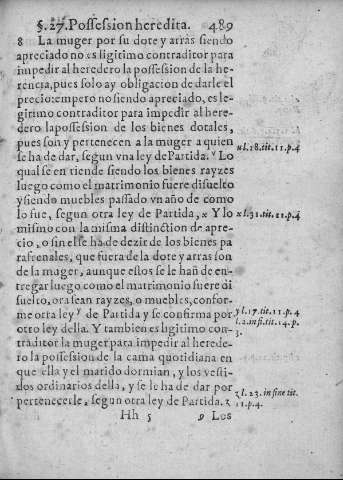 §. 27. Possession heredita. 489
8 La muger por su dote y arras siendo
apreciado no es ligitimo contraditor para
impedir al heredero la possession de la he-
rencia, pues solo ay obligacion de darle el
precio: empero no siendo apreciado, es le-
gitimo contraditor para impedir al here-
dero lapossession de los bienes dotales,
pues son y pertenecen a la muger a quien
se ha de dar, segun vna ley de Partida. Lo
u l. 18. tit. 11. p. 4
qual se en tiende siendo los bienes rayzes
luego como el matrimonio fuere disuelto
y siendo muebles passado vn año de como
lo fue, segun otra ley de Partida, x Y lo
x l. 31. tit. 11. p. 4
mismo con la misma distinction de apre-
cio, o sin el se ha de dezir de los bienes pa
rafrenales, que fuera de la dote y arras son
de la muger, aunque estos se le han de en-
tregar luego como el matrimonio fuere di
suelto, ora sean rayzes, o muebles, confor-
me otra ley y de Partida y se confirma por
y l. 17. tit. 11. p. 4
otro ley della. Y tambien es ligitimo con-
l. 2. in fi. tit. 14. p.
3.
traditor la muger para impedir al herede-
ro la possession de la cama quotidiana en
que ella y el marido dormian, y los vesti-
dos ordinarios della, y se le ha de dar por
z l. 23. in fine tit.
pertenecerle, segun otra ley de Partida. z
11. p. 4.
Hh 5 9 Los